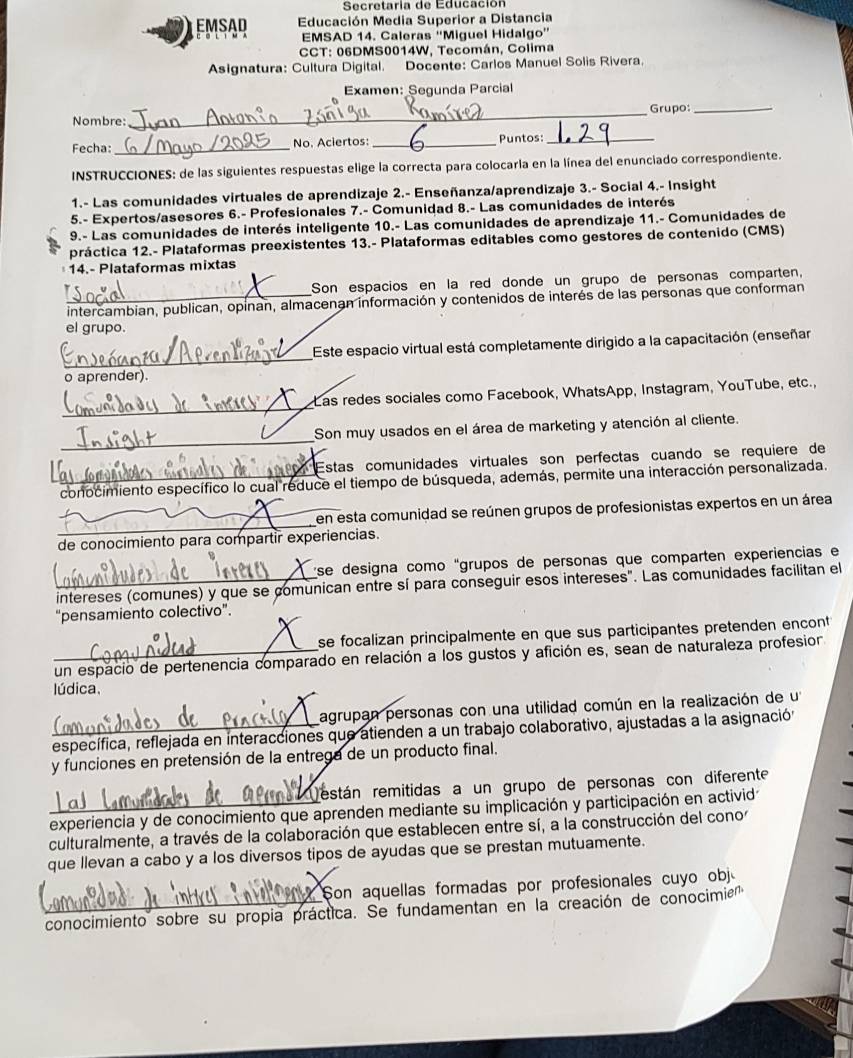 Secretaría de Educación
EMSAD
COLIMA
Educación Media Superior a Distancia
EMSAD 14. Caleras "Miguel Hidalgo"
CCT: 06DMS0014W, Tecomán, Colima
Asignatura: Cultura Digital. Docente: Carlos Manuel Solis Rivera.
Examen: Segunda Parcial
Nombre: Juan Antonio Zúñiga Ramírez Grupo:
Fecha: 6/Mayo/2025 No. Aciertos: 6 Puntos: 1.29
INSTRUCCIONES: de las siguientes respuestas elige la correcta para colocarla en la línea del enunciado correspondiente.
1.- Las comunidades virtuales de aprendizaje 2.- Enseñanza/aprendizaje 3.- Social 4.- Insight
5.- Expertos/asesores 6.- Profesionales 7.- Comunidad 8.- Las comunidades de interés
9.- Las comunidades de interés inteligente 10.- Las comunidades de aprendizaje 11.- Comunidades de
práctica 12.- Plataformas preexistentes 13.- Plataformas editables como gestores de contenido (CMS)
14.- Plataformas mixtas
Social X Son espacios en la red donde un grupo de personas comparten,
intercambian, publican, opinan, almacenan información y contenidos de interés de las personas que conforman
el grupo.
Enseñanza/Aprendizaje ✓ Este espacio virtual está completamente dirigido a la capacitación (enseñar
o aprender).
Comunidades de interes X Las redes sociales como Facebook, WhatsApp, Instagram, YouTube, etc.,
Insight ✓ Son muy usados en el área de marketing y atención al cliente.
Las comunidades virtuales de Estas comunidades virtuales son perfectas cuando se requiere de
conocimiento específico lo cual reduce el tiempo de búsqueda, además, permite una interacción personalizada.
X en esta comunidad se reúnen grupos de profesionistas expertos en un área
de conocimiento para compartir experiencias.
Comunidades de Interes X se designa como "grupos de personas que comparten experiencias e
intereses (comunes) y que se comunican entre sí para conseguir esos intereses". Las comunidades facilitan el
"pensamiento colectivo".
Comunidad X se focalizan principalmente en que sus participantes pretenden encont
un espacio de pertenencia comparado en relación a los gustos y afición es, sean de naturaleza profesior
lúdica.
Comunidades de practica X agrupan personas con una utilidad común en la realización de u
específica, reflejada en interacciones que atienden a un trabajo colaborativo, ajustadas a la asignació
y funciones en pretensión de la entrega de un producto final.
Las Comunidades de ✓ están remitidas a un grupo de personas con diferente
experiencia y de conocimiento que aprenden mediante su implicación y participación en activid
culturalmente, a través de la colaboración que establecen entre sí, a la construcción del cono
que llevan a cabo y a los diversos tipos de ayudas que se prestan mutuamente.
Comunidad de intres inteligente X Son aquellas formadas por profesionales cuyo obj
conocimiento sobre su propia práctica. Se fundamentan en la creación de conocimien